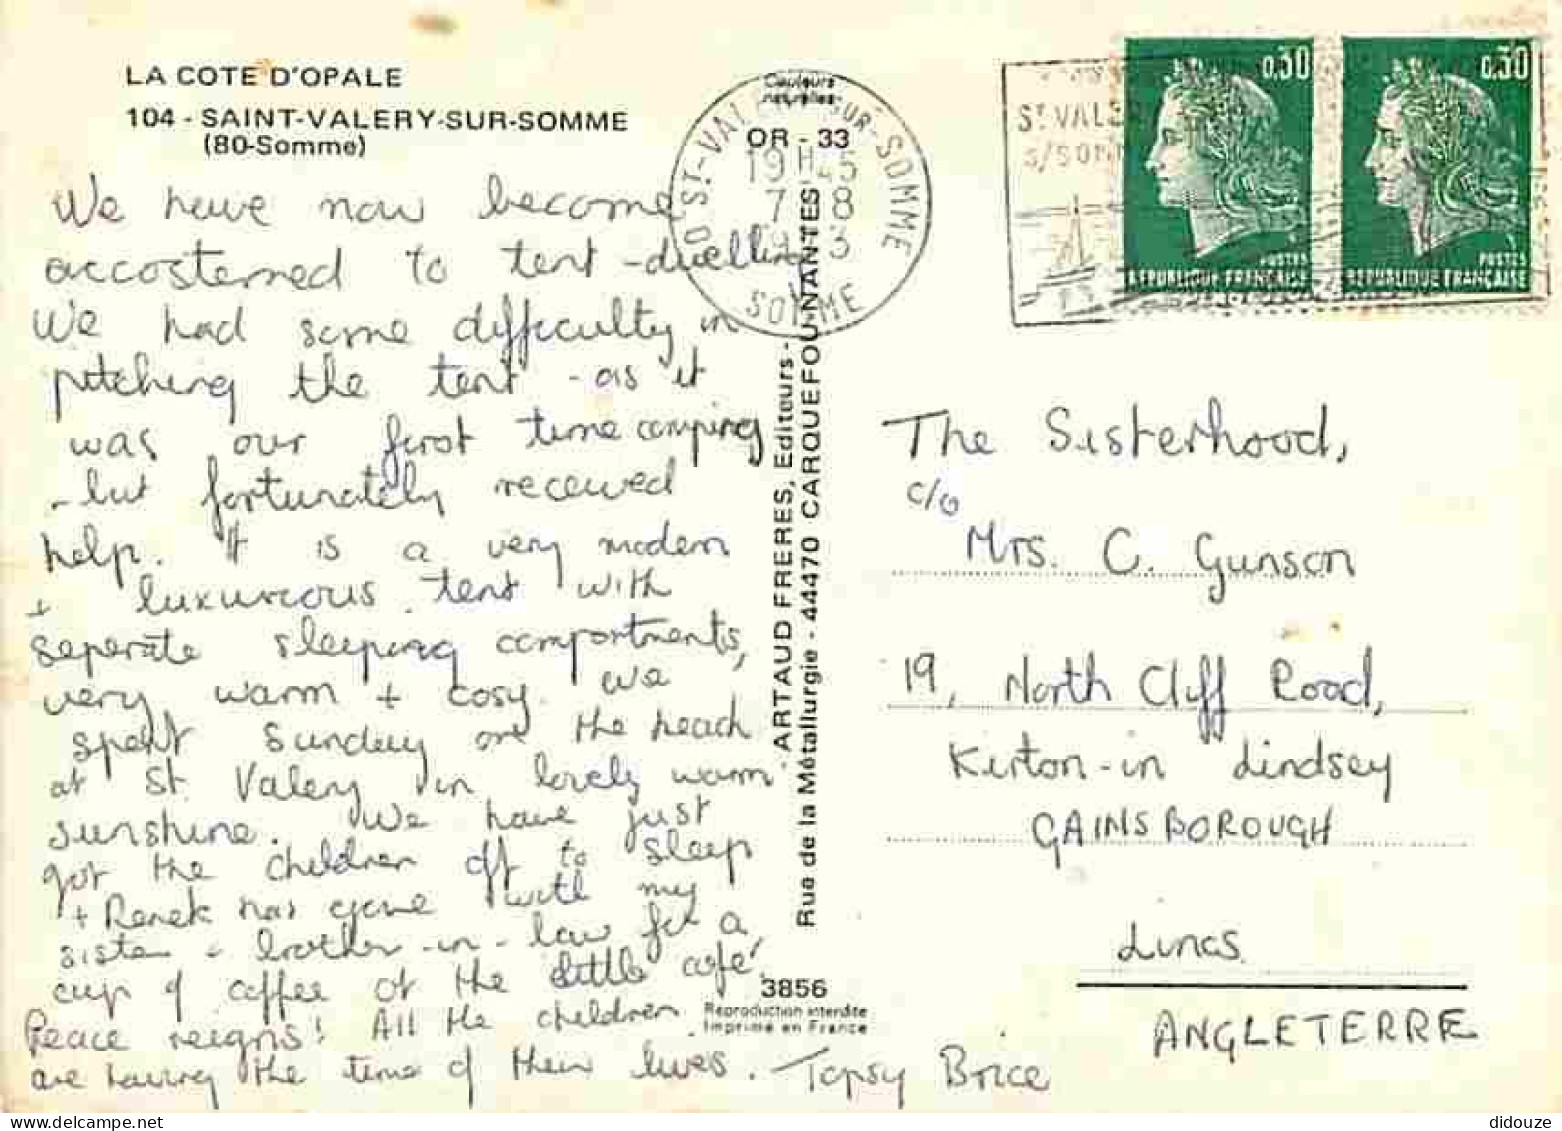 LA COTE D'OPALE
104 - SAINT-VALERY-SUR-SOMME
(80-Somme)
We have now become
accosterned to tent-dwelling
We had some difficulty in
pitching the tent - as it
was our first time camping
- but fortunately received
help. It is a very modern
+ luxurious tent with
seperate sleeping compartments,
very warm + cosy. We
spent Sunday on the beach
at St Valery in lovely warm
sunshine. We have just
got the children off to sleep
+ Renek has gone with my
sister + brother-in-law for a
cup of coffee at the little café.
Peace reigns! All the children
are having the time of their lives. Topsy Brice
Couleurs
naturelles
OR - 33
80 ST-VALERY-SUR-SOMME
19H45
7 8
SOMME
ST VALERY
S/SOMME
0,30
POSTES
REPUBLIQUE FRANÇAISE
0,30
POSTES
REPUBLIQUE FRANÇAISE
- ARTAUD FRERES, Editeurs -
Rue de la Métallurgie - 44470 CARQUEFOU-NANTES
3856
Reproduction interdite
Imprimé en France
The Sisterhood,
c/o
Mrs. C. Gunson
19, North Cliff Road,
Kirton-in Lindsey
GAINSBOROUGH
Lincs
ANGLETERRE
didouze @ delcampe.net